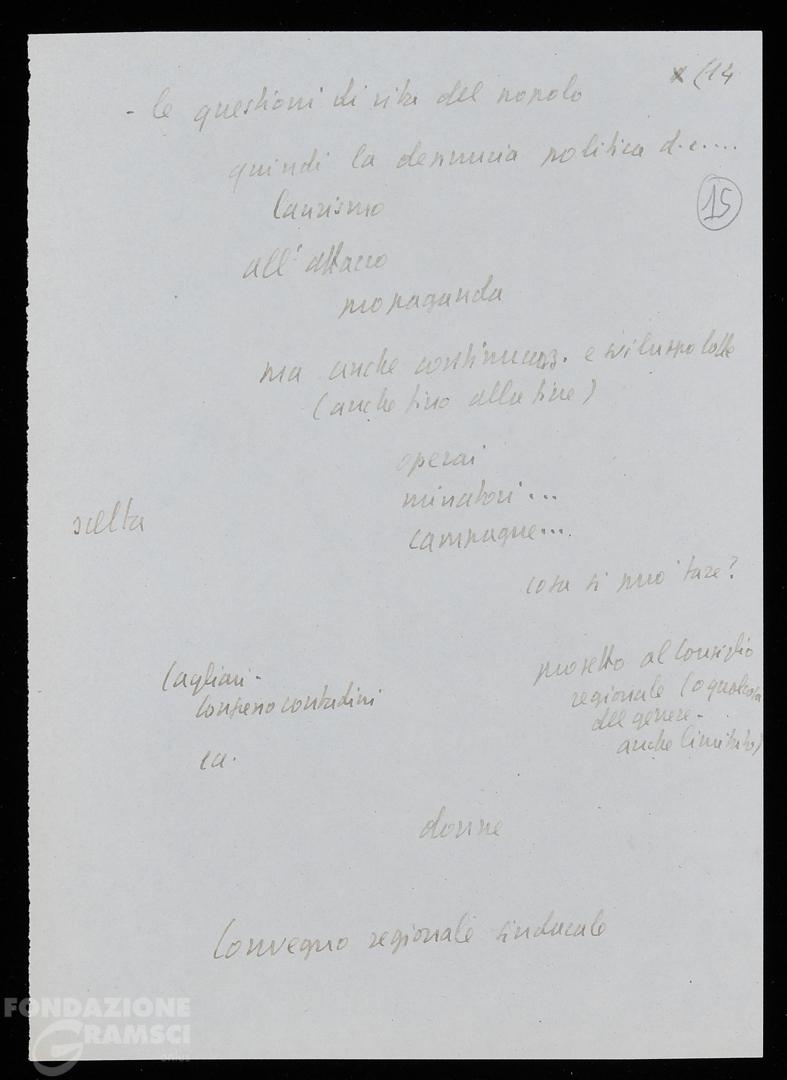 x (14
- le questioni di vita del popolo
quindi la denuncia politica d.c.....
15
laurismo
all'attacco
propaganda
ma anche continuaz. e sviluppo lotte
(anche fino alla fine)
operai
minatori...
scelta
campagne...
cosa si può fare?
Cagliari -
Congresso contadini
ca.
progetto al Consiglio
regionale (o qualcosa
del genere -
anche limitato)
donne
Convegno regionale sindacale
FONDAZIONE
GRAMSCI
onlus